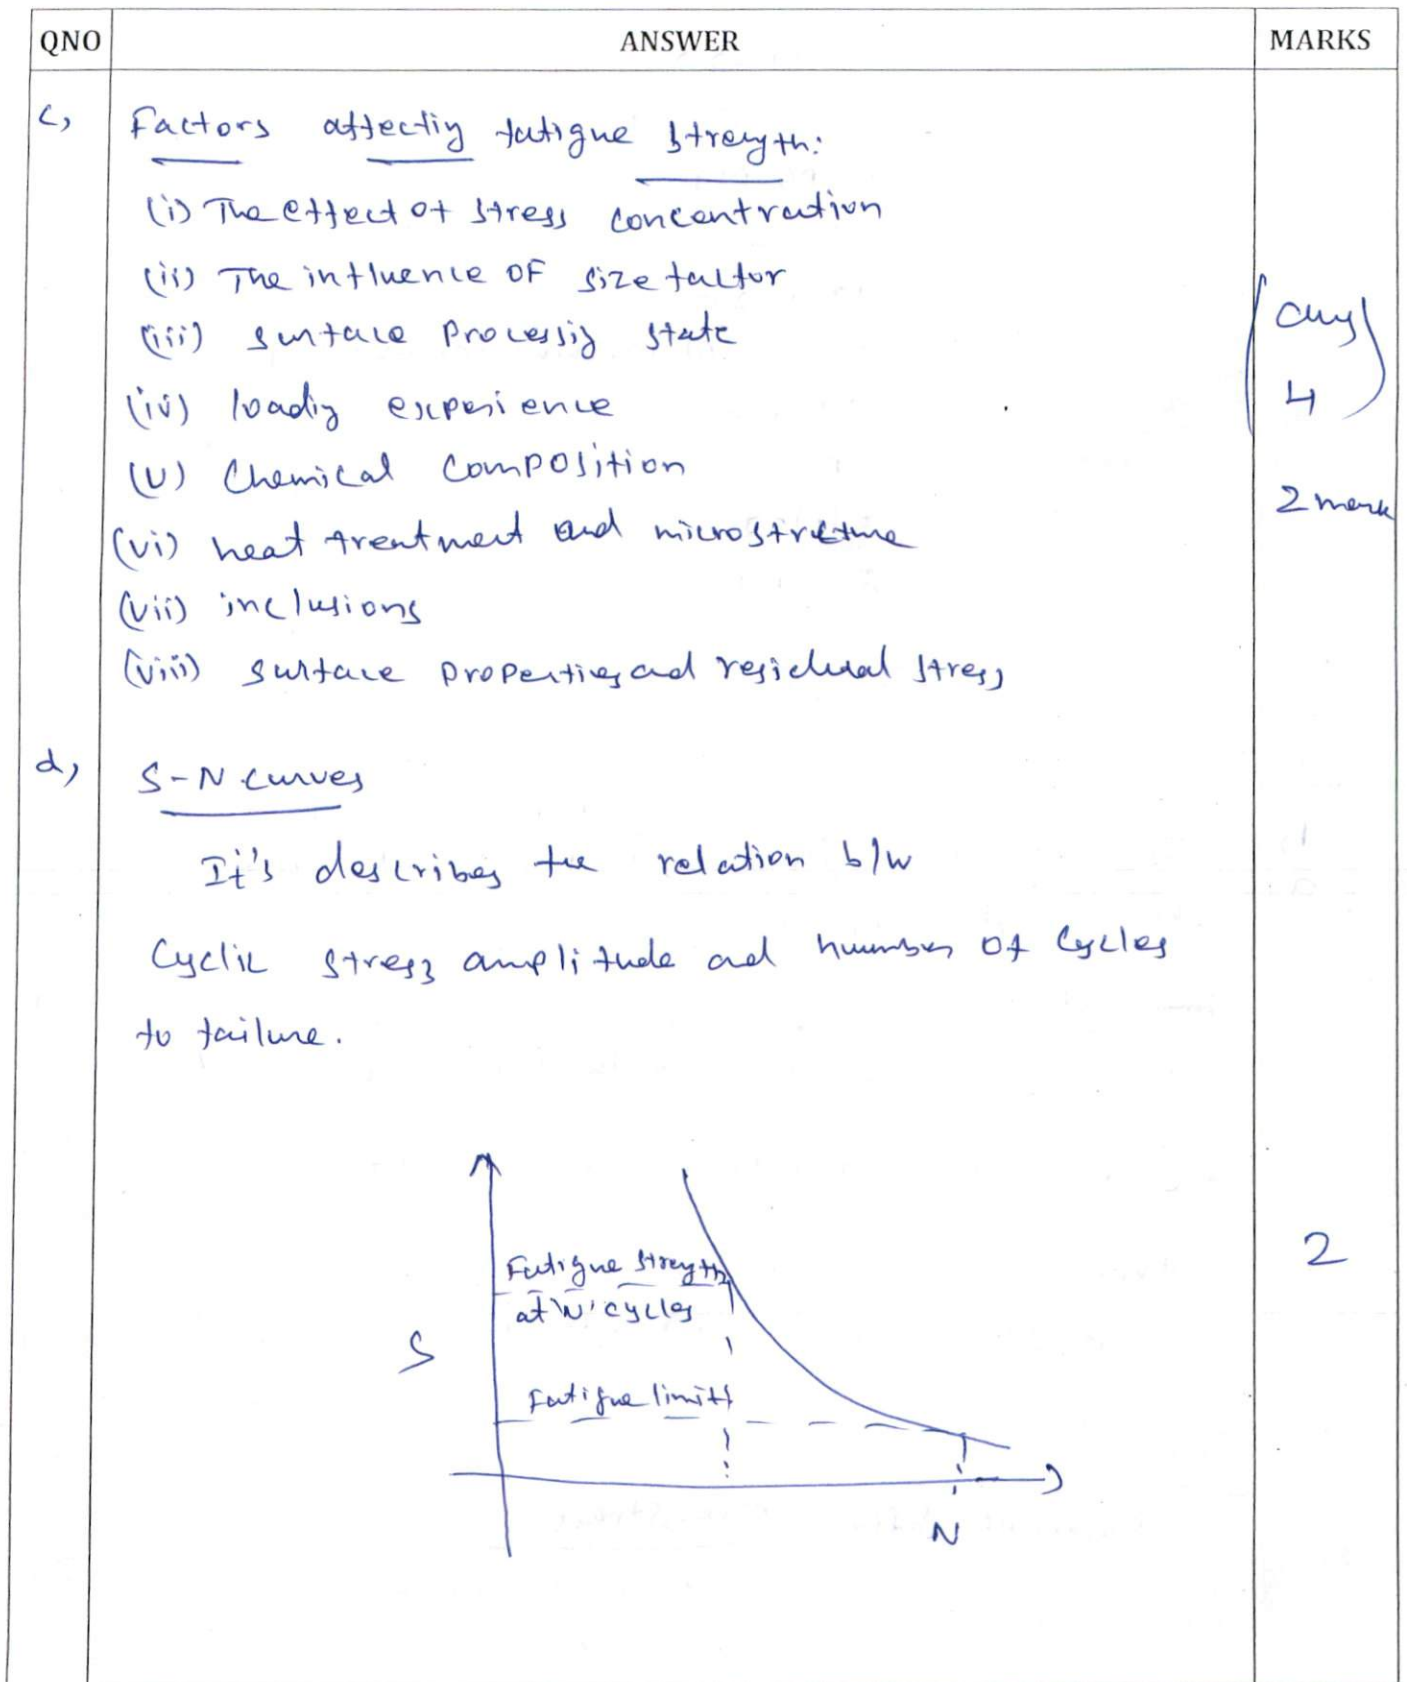 QNO ANSWER MARKS
c, Factors affecting fatigue strength:
(i) The effect of stress concentration
(ii) The influence OF size factor
(iii) surface Processing state
(any 4)
(iv) loading experience
(v) Chemical Composition
2 mark
(vi) heat treatment and microstructure
(vii) inclusions
(viii) surface properties and residual stress
d, S-N curves
It's describes the relation b/w
Cyclic stress amplitude and number of Cycles
to failure.
2
Fatigue strength
at 'N' cycles
S
Fatigue limit
N